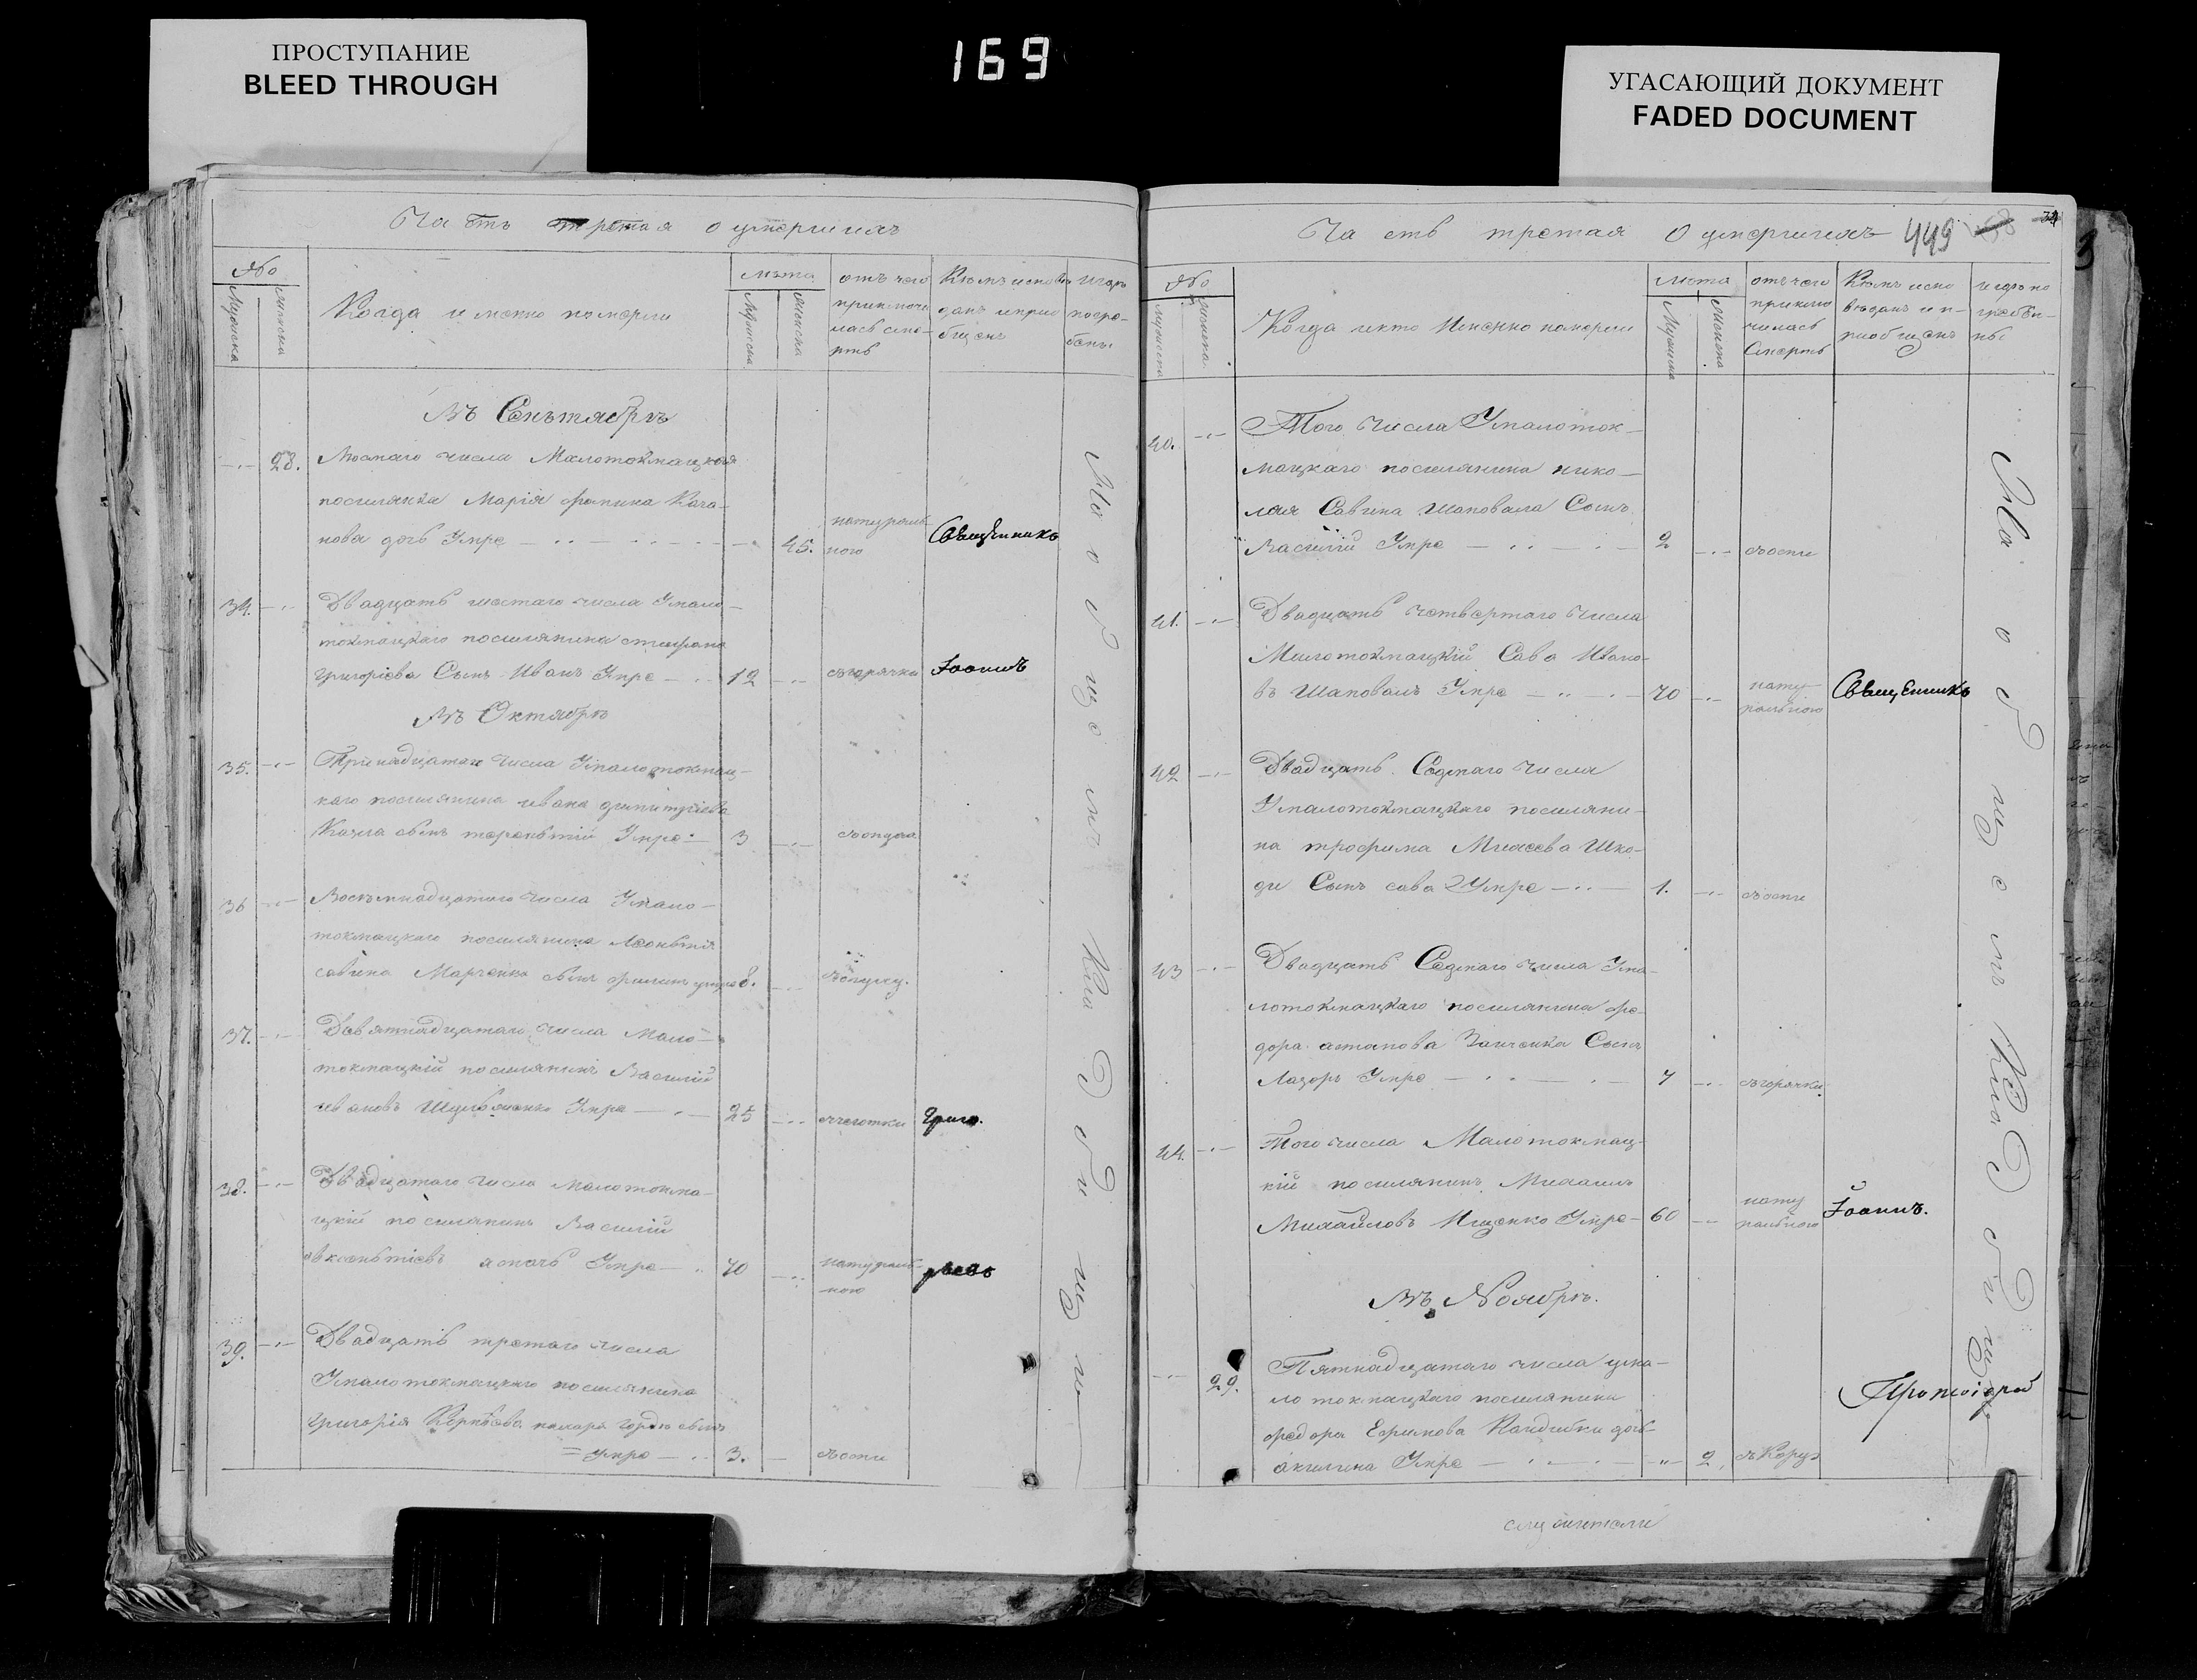 ПРОСТУПАНИЕ
BLEED THROUGH
169
УГАСАЮЩИЙ ДОКУМЕНТ
FADED DOCUMENT
Часть третая о умершихъ
№
Мужска
Женска
Когда и именно померли
лѣта
Мужска
Женска
отъ чего
приключи
лась сме-
рть
Кѣмъ исповѣ
данъ и прио
бщенъ
и гдѣ
погре-
бены
Въ Сенътябрѣ
28.
числа Малотокмацкая
поселянка Марія Фомина Кача-
нова дочь Умре
45.
натураль-
ною
Священникъ
34.
Двадцать шестаго числа Умало-
токмацкаго поселянина стефана
григоріева Сынъ Иванъ Умре
12
згарячки
Іоаннъ
Въ Октябрѣ
35.
Тринадцатаго числа Умалотокмац-
каго поселянина ивана димитріева
Козла сынъ терентій Умре
3
36
Восемнадцатаго числа Умало-
токмацкаго поселянина Леонтія
савина Марченка сынъ филипъ умре
8.
37.
Девятнадцатаго числа Мало-
токмацкій поселянинъ Василій
ивановъ Умре
25
Григо.
38.
Двадцатаго числа малотокма-
цкій поселянинъ Василій
Умре
70
натураль-
ною
рьевъ
39.
Двадцать третаго числа
Умалотокмацкаго поселянина
григорія сынъ
= умре
3.
зоспи
На общемъ Кладбищѣ
Часть третая о умершихъ
449
34
№
Мужска
Женска
Когда и кто Именно померли
лѣта
Мужска
Женска
отъ чего
приклю
чилась
Смерть
Кѣмъ испо
вѣданъ и п-
риобщенъ
и гдѣ по
гребѣ-
ны
40.
Того Числа Умалоток-
мацкаго поселянина нико-
лая Савина Шаповала Сынъ
Василій Умре
2
зоспи
41.
Двадцать четвертаго Числа
Малотокмацкій Сава Ивано-
въ Шаповалъ Умре
70
нату
ральною
Священникъ
42
Двадцать Седмаго Числа
Умалотокмацкаго поселяни-
на трофима Шко-
ди Сынъ сава Умре
1.
зоспи
43
Двадцать Седмаго Числа Ума-
лотокмацкаго поселянина фе-
дора Заиченка Сынъ
Лазорь Умре
7
згорячки
44.
Того числа Малотокмац-
кій поселянинъ Михаилъ
Михайловъ Ищенко Умре
60
нату
ральною
Іоаннъ.
Въ Ноябрѣ.
29.
Пятнадцатаго числа ума-
лотокмацкаго поселянина
федора Ефимова дочь
акилина Умре
2
зКору
На общемъ Кладбищѣ
Протоіерей